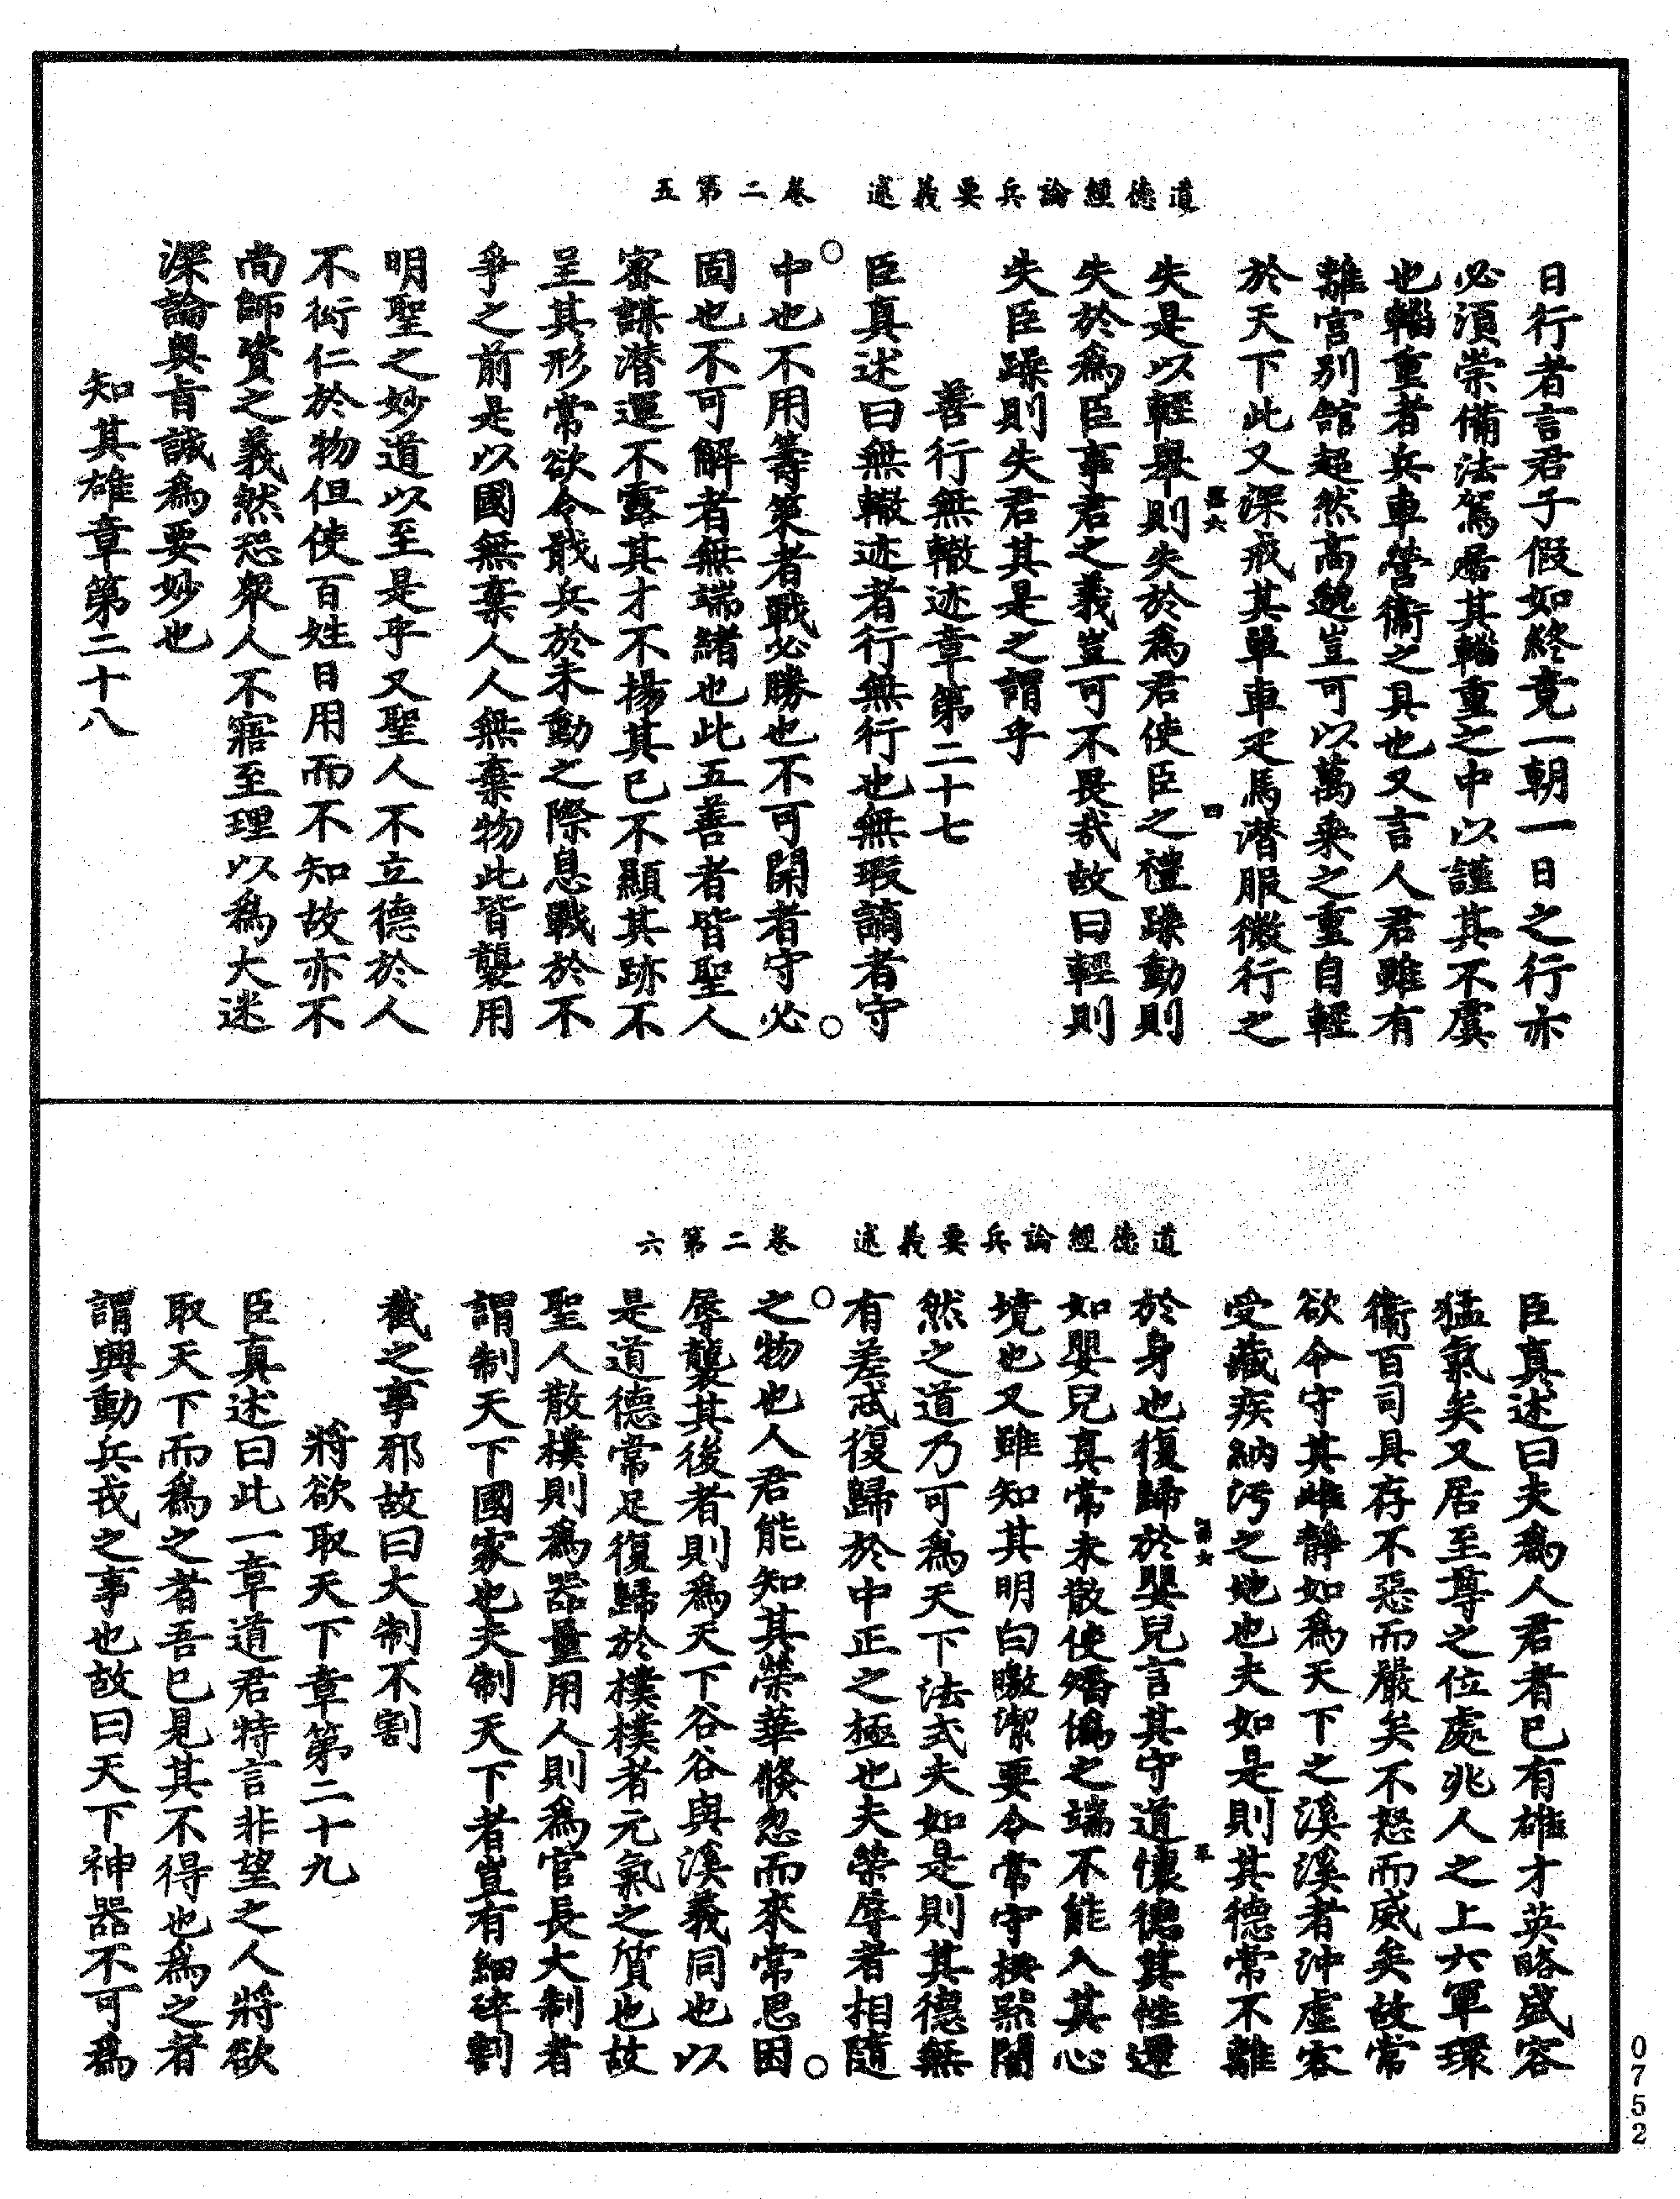 道德經論兵要義述　卷二第五
日行者言君子假如終竟一朝一日之行亦
必須崇備法駕居其輜重之中以謹其不虞
也輜重者兵車營衞之具也又言人君雖有
離宮別舘超然高邈豈可以萬乗之重自輕
於天下此又深戒其單車疋馬潛服微行之
四
失是以輕舉則失於爲君使臣之禮躁動則
失於爲臣事君之義豈可不畏哉故曰輕則
失臣躁則失君其是之謂乎
善行無轍迹章第二十七
臣真述曰無轍迹者行無行也無瑕讁者守
中也不用籌策者戰必勝也不可開者守必
固也不可解者無端緒也此五善者皆聖人
密謀潛運不露其才不揚其已不顯其跡不
呈其形常欲令戢兵於未動之際息戰於不
爭之前是以國無棄人人無棄物此皆襲用
明聖之妙道以至是乎又聖人不立德於人
不衒仁於物但使百姓日用而不知故亦不
尚師資之義然恐衆人不寤至理以爲大迷
深論奥旨誠爲要妙也
知其雄章第二十八
道德經論兵要義述　卷二第六
臣真述曰夫爲人君者已有雄才英略盛容
猛氣矣又居至尊之位處兆人之上六軍環
衞百司具存不惡而嚴矣不怒而威矣故常
欲令守其雌靜如爲天下之溪溪者沖虛容
受藏疾納污之地也夫如是則其德常不離
於身也復歸於嬰兒言其守道懷德其性還
如嬰兒真常未散使矯僞之端不能入其心
境也又雖知其明白曒潔要令常守撫黙闇
然之道乃可爲天下法式夫如是則其德無
有差忒復歸於中正之極也夫榮辱者相隨
之物也人君能知其榮華倐忽而來常思困
辱襲其後者則爲天下谷谷與溪義同也以
是道德常足復歸於樸樸者元氣之質也故
聖人散樸則爲器量用人則爲官長大制者
謂制天下國家也夫制天下者豈有細碎割
截之事邪故曰大制不割
將欲取天下章第二十九
臣真述曰此一章道君特言非望之人將欲
取天下而爲之者吾已見其不得也爲之者
謂興動兵戎之事也故曰天下神器不可爲
0752